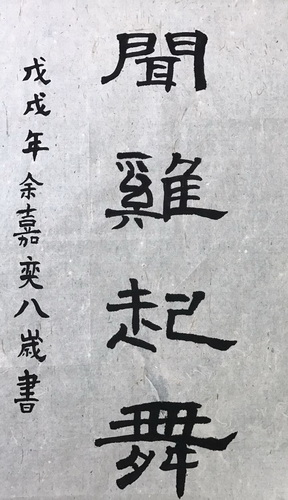 聞雞起舞
戊戌年余嘉奕八歲書